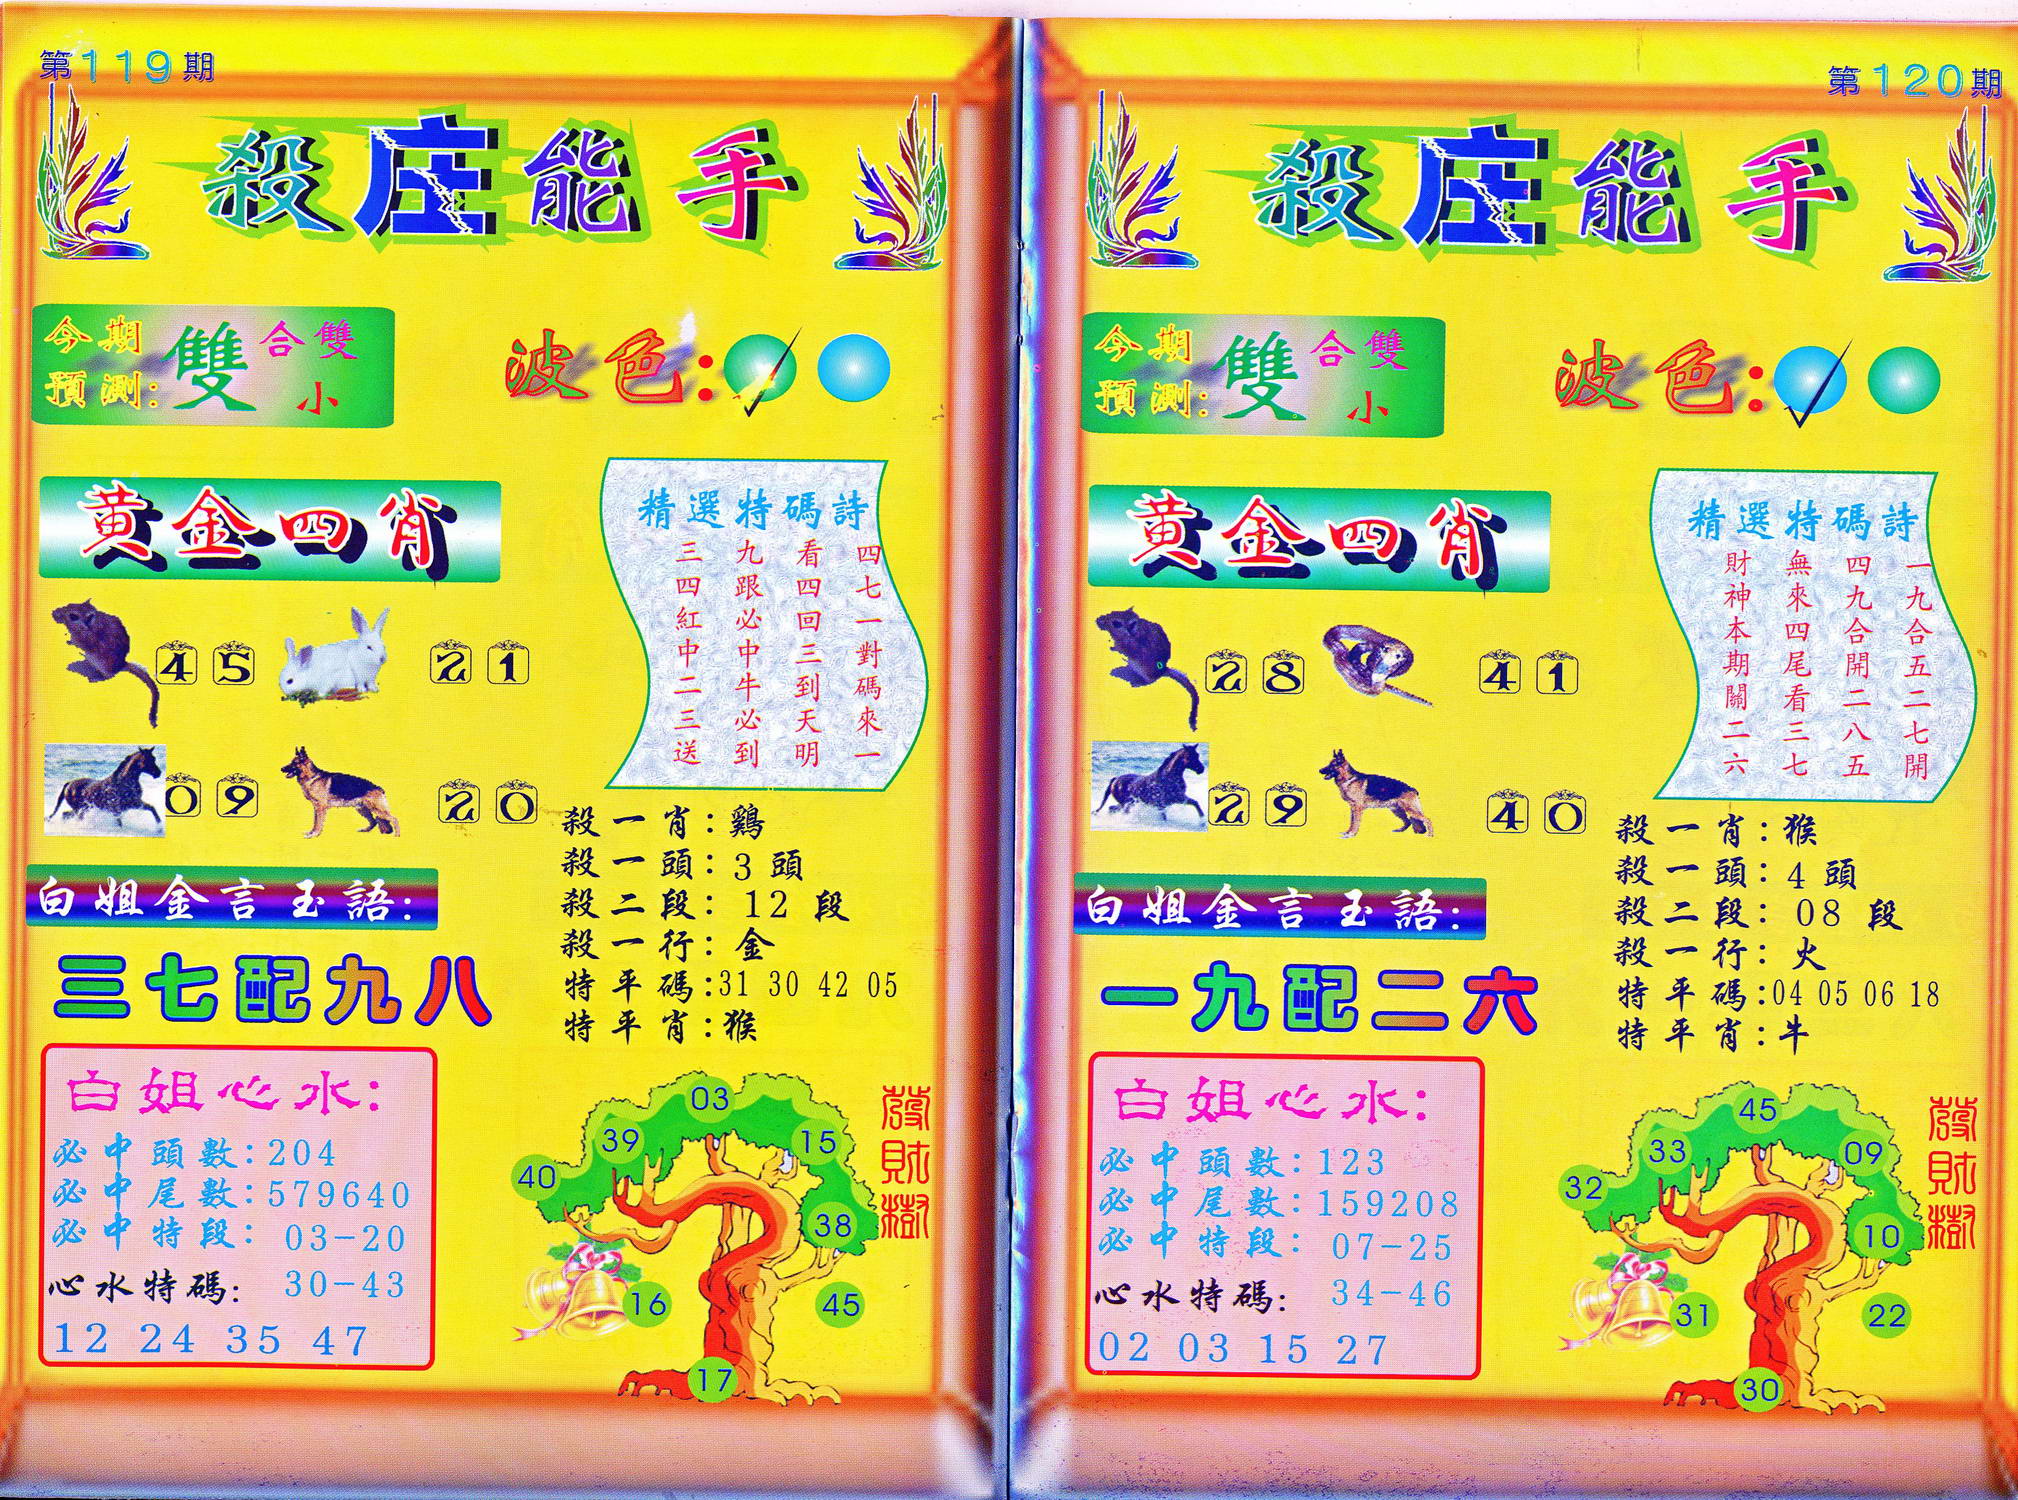 第119期
殺庄能手
今期
預測:
雙
合雙
小
波色:
黄金四肖
45
21
09
20
精選特碼詩
四七一對碼來一
看四回三到天明
九跟必中牛必到
三四紅中二三送
殺一肖:鷄
殺一頭:3頭
殺二段:12段
殺一行:金
特平碼:31 30 42 05
特平肖:猴
白姐金言玉語:
三七配九八
白姐心水:
必中頭數:204
必中尾數:579640
必中特段:03-20
心水特碼:30-43
12 24 35 47
03
39
15
40
38
16
45
17
發財樹
第120期
殺庄能手
今期
預測:
雙
合雙
小
波色:
黄金四肖
28
41
29
40
精選特碼詩
一九合五二七開
四九合開二八五
無來四尾看三七
財神本期關二六
殺一肖:猴
殺一頭:4頭
殺二段:08段
殺一行:火
特平碼:04 05 06 18
特平肖:牛
白姐金言玉語:
一九配二六
白姐心水:
必中頭數:123
必中尾數:159208
必中特段:07-25
心水特碼:34-46
02 03 15 27
45
33
09
32
10
31
22
30
發財樹